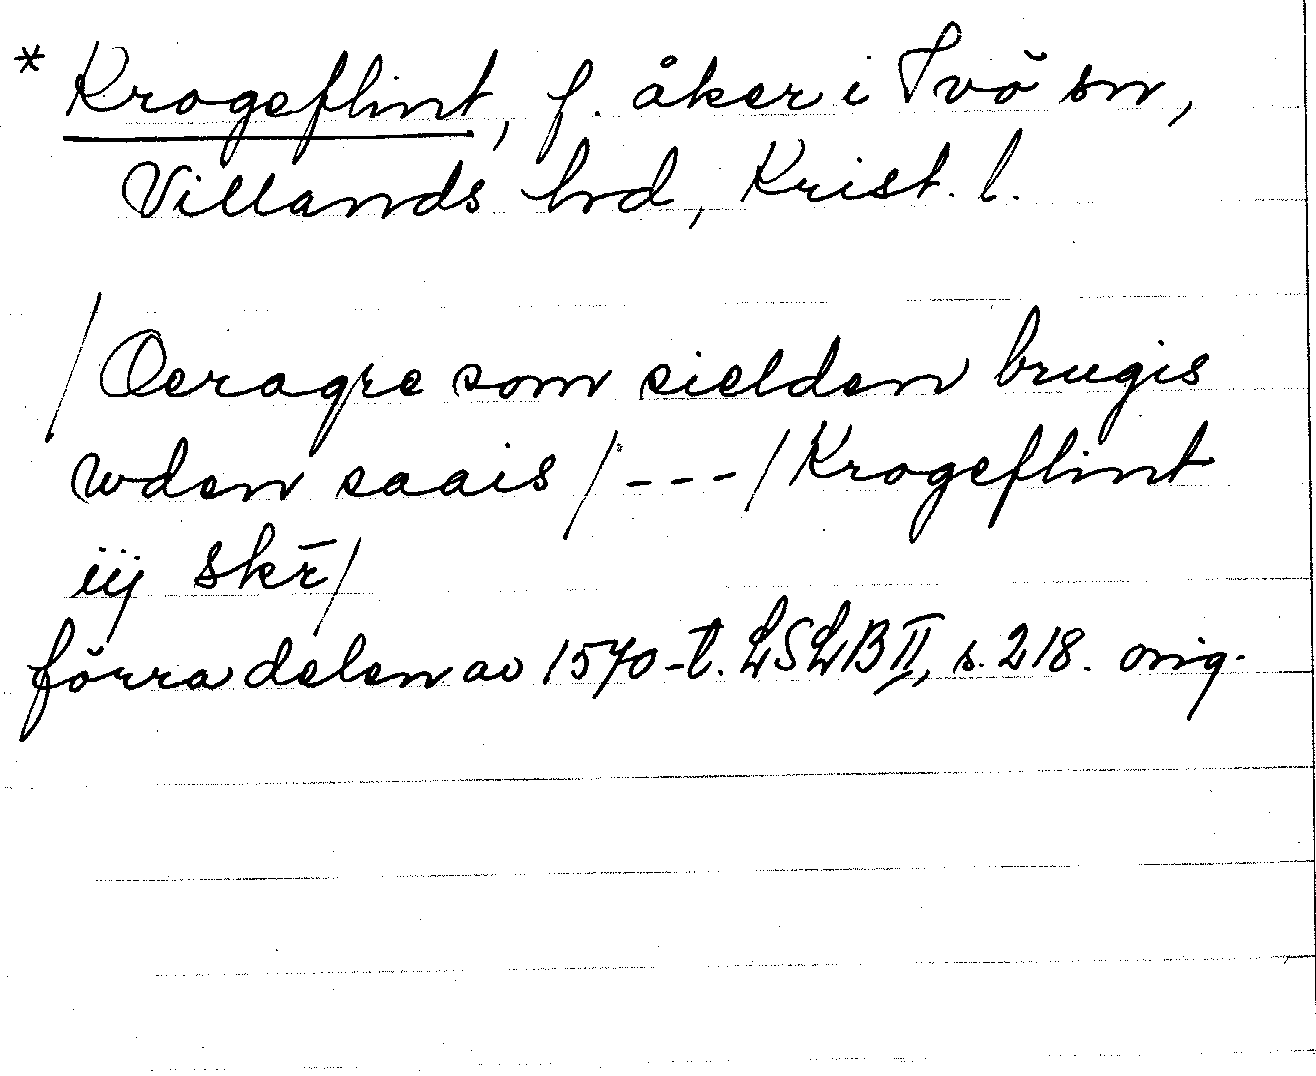 * Krogeflint, f. åker i Ivö sn,
Villands hrd, Krist. l.
/Oeragre som sielden brugis
wden saais /---/ Krogeflint
iij skr̄/
förra delen av 1570-t. LSLB II, s. 218. orig.